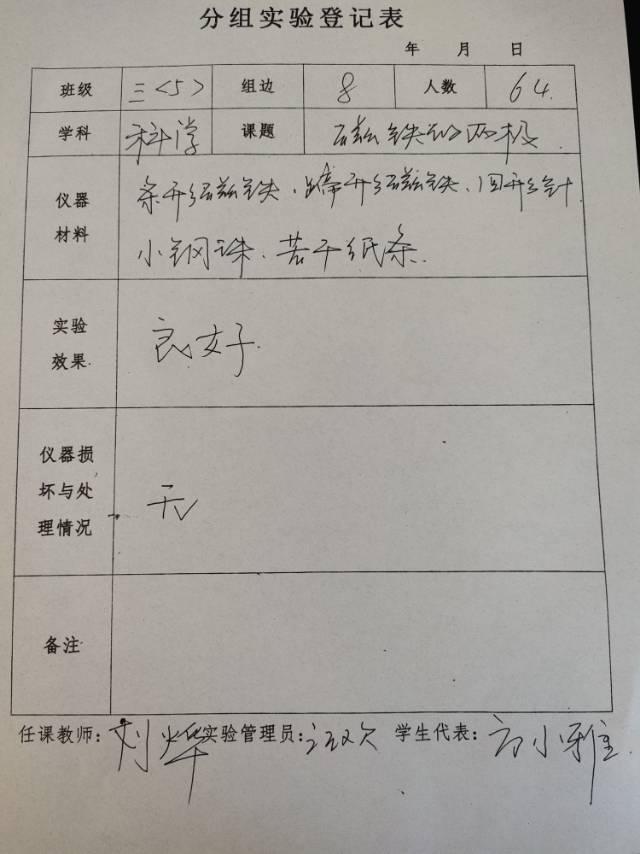 分组实验登记表
年 月 日
班级 三<5> 组边 8 人数 64
学科 科学 课题 磁铁的两极
仪器材料 条形磁铁、蹄形磁铁、回形针
小钢珠、若干纸条
实验效果 良好
仪器损坏与处理情况 无
备注
任课教师: 刘烨 实验管理员: 学生代表: 小雅